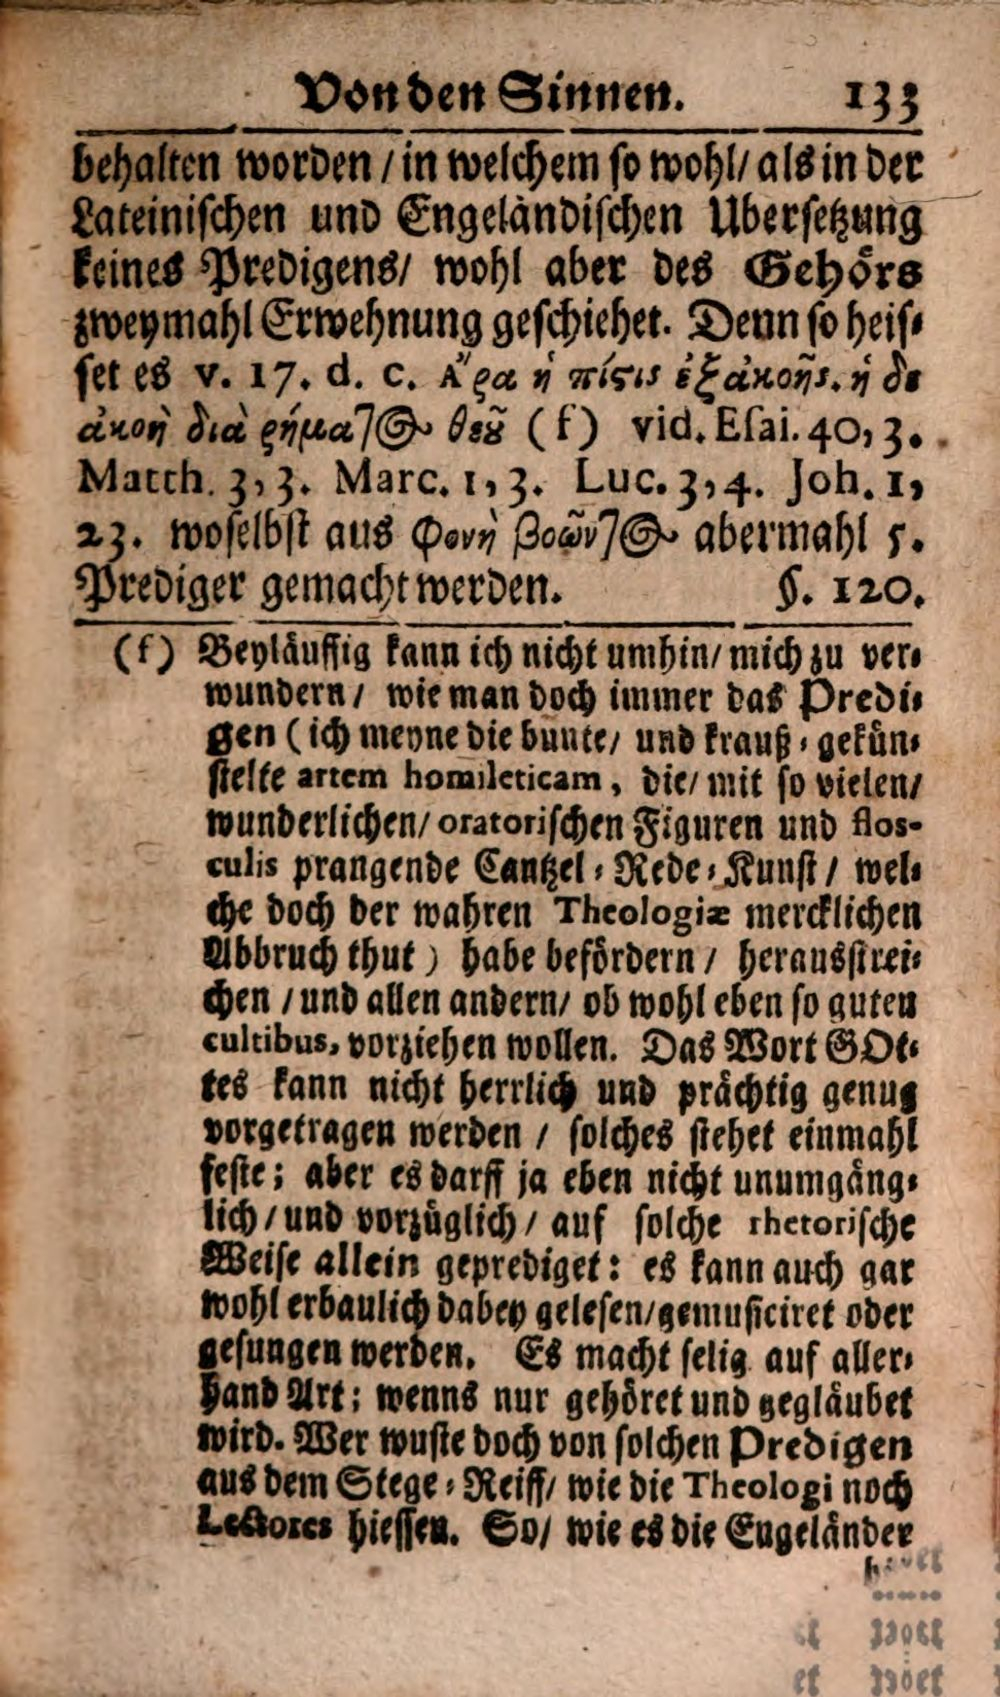 Von den Sinnen. 133
behalten worden / in welchem so wohl / als in der
Lateinischen und Engeländischen Ubersetzung
keines Predigens / wohl aber des Gehörs
zweymahl Erwehnung geschiehet. Denn so heis-
set es v. 17. d. c. Ἄρα ἡ πίςις ἐξ ἀκοῆς. ἡ δε
ἀκοὴ διὰ ῥήματος θεοῦ (f) vid. Esai. 40, 3.
Matth. 3, 3. Marc. 1, 3. Luc. 3, 4. Joh. 1,
23. woselbst aus Φονὴ βοῶντος abermahl 5.
Prediger gemacht werden. §. 120.
(f) Beyläuffig kann ich nicht umhin / mich zu ver-
wundern / wie man doch immer das Predi-
gen (ich meyne die bunte / und krauß-gekün-
stelte artem homileticam, die / mit so vielen /
wunderlichen / oratorischen Figuren und flos-
culis prangende Cantzel-Rede-Kunst / wel-
che doch der wahren Theologiæ mercklichen
Abbruch thut) habe befördern / herausstrei-
chen / und allen andern / ob wohl eben so guten
cultibus, vorziehen wollen. Das Wort GOt-
tes kann nicht herrlich und prächtig genug
vorgetragen werden / solches stehet einmahl
feste; aber es darff ja eben nicht unumgäng-
lich / und vorzüglich / auf solche rhetorische
Weise allein geprediget: es kann auch gar
wohl erbaulich dabey gelesen / gemusiciret oder
gesungen werden. Es macht selig auf aller-
hand Art; wenns nur gehöret und gegläubet
wird. Wer wuste doch von solchen Predigen
aus dem Stege-Reiff / wie die Theologi noch
Lectores hiessen. So / wie es die Engeländer